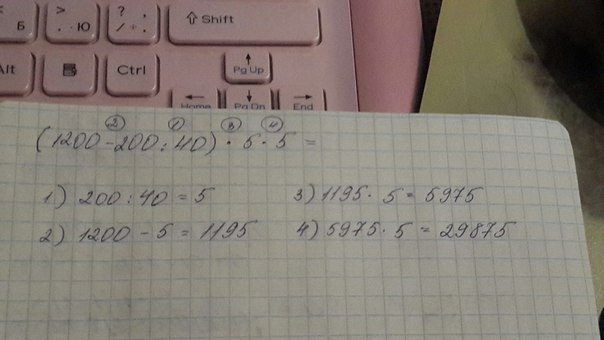 < Б
> . Ю
? , / ÷ .
⇧ Shift
Alt
Ctrl
Pg Up
Home
Pg Dn
End
② ① ③ ④
(1200-200:40)·5·5=
1) 200:40=5
2) 1200-5=1195
3) 1195·5=5975
4) 5975·5=29875